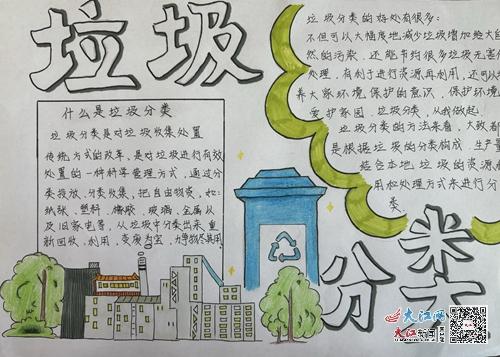 垃圾
什么是垃圾分类
垃圾分类是对垃圾收集处置
传统方式的改革，是对垃圾进行有效
处置的一种科学管理方式，通过分
类投放、分类收集，把有用物资，如：
纸张、塑料、橡胶、玻璃、金属以
及旧家电等，从垃圾中分类出来重
新回收、利用，变废为宝，力争物尽其用
垃圾分类的好处有很多：
不但可以大幅度地减少垃圾增加给大自
然的污染，还能节约很多垃圾无害化
处理，有利于进行资源再利用，还可以培
养大家环境保护的意识，保护环境
爱护家园。垃圾分类，从我做起。
垃圾分类的方法来看，大致都
是根据垃圾的分类构成、生产量
结合本地垃圾的资源
用和处理方式来进行分
类。
分类
大江网
大江新闻